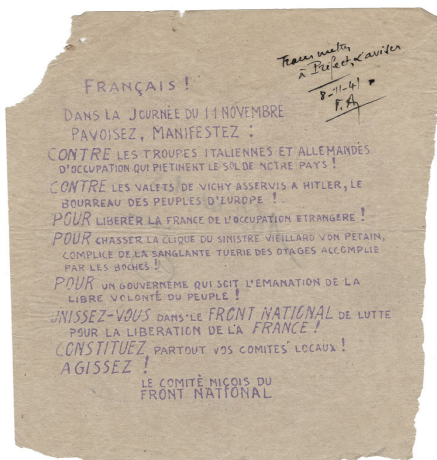 Transmettre
à Préfect, à aviser
8-11-41
P.A
FRANÇAIS !
DANS LA JOURNÉE DU 11 NOVEMBRE
PAVOISEZ, MANIFESTEZ :
CONTRE LES TROUPES ITALIENNES ET ALLEMANDES
D'OCCUPATION QUI PIETINENT LE SOL DE NOTRE PAYS !
CONTRE LES VALETS DE VICHY ASSERVIS A HITLER, LE
BOURREAU DES PEUPLES D'EUROPE !
POUR LIBERER LA FRANCE DE L'OCCUPATION ETRANGERE !
POUR CHASSER LA CLIQUE DU SINISTRE VIEILLARD VON PETAIN,
COMPLICE DE LA SANGLANTE TUERIE DES OTAGES ACCOMPLIE
PAR LES BOCHES !
POUR UN GOUVERNEME QUI SOIT L'EMANATION DE LA
LIBRE VOLONTÉ DU PEUPLE !
UNISSEZ-VOUS DANS LE FRONT NATIONAL DE LUTTE
POUR LA LIBERATION DE LA FRANCE !
CONSTITUEZ PARTOUT VOS COMITÉS LOCAUX !
AGISSEZ !
LE COMITÉ NIÇOIS DU
FRONT NATIONAL